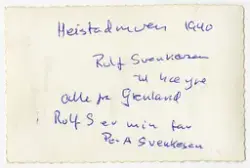 Heistadmoen 1940
Rolf Svenkesen
til høyre
alle fra Grenland
Rolf S er min far
Per A Svenkesen